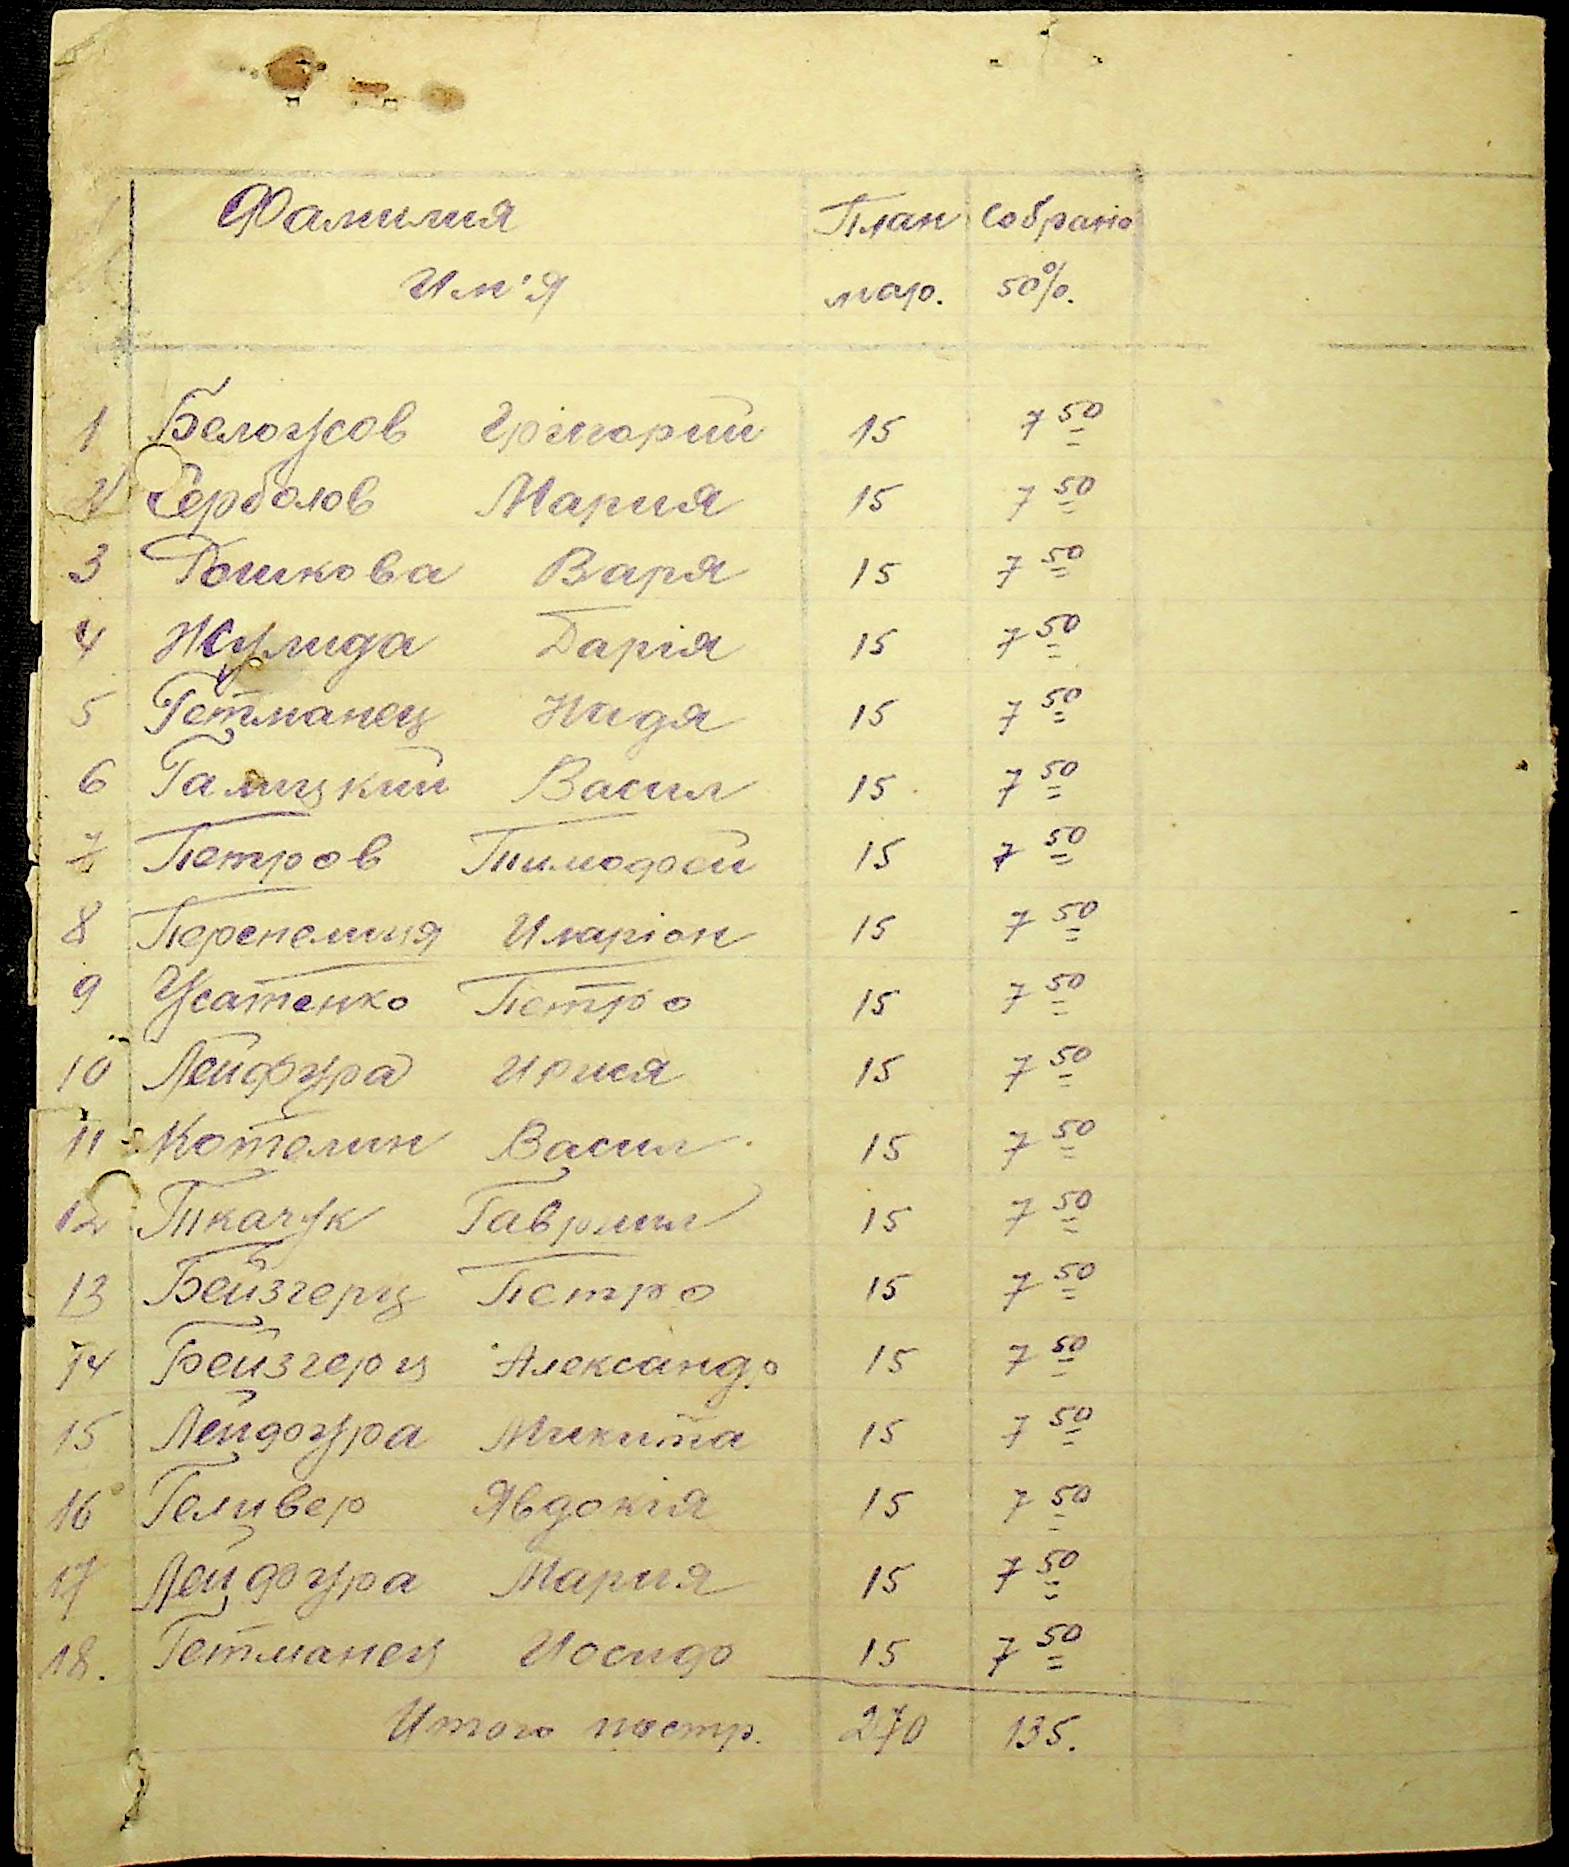 Фамилия План Собрано
Им'я мар. 50%.
1 Белоусов Грігорий 15 7 50
2 Серболов Мария 15 7 50
3 Дошкова Варя 15 7 50
4 Жулида Дарія 15 7 50
5 Гетманец Надя 15 7 50
6 Галицкий Васил 15 7 50
7 Петров Тимофей 15 7 50
8 Перепелиця Иларіон 15 7 50
9 Усатенко Петро 15 7 50
10 Лейфура 15 7 50
11 Котелин Васил 15 7 50
12 Ткачук Гаврил 15 7 50
13 Бейзгерц Петро 15 7 50
14 Бейзгерц Александр 15 7 50
15 Лейфура Микита 15 7 50
16 Геливер Явдокія 15 7 50
17 Лейфура Мария 15 7 50
18. Гетманец Иосиф 15 7 50
Итого постр. 270 135.